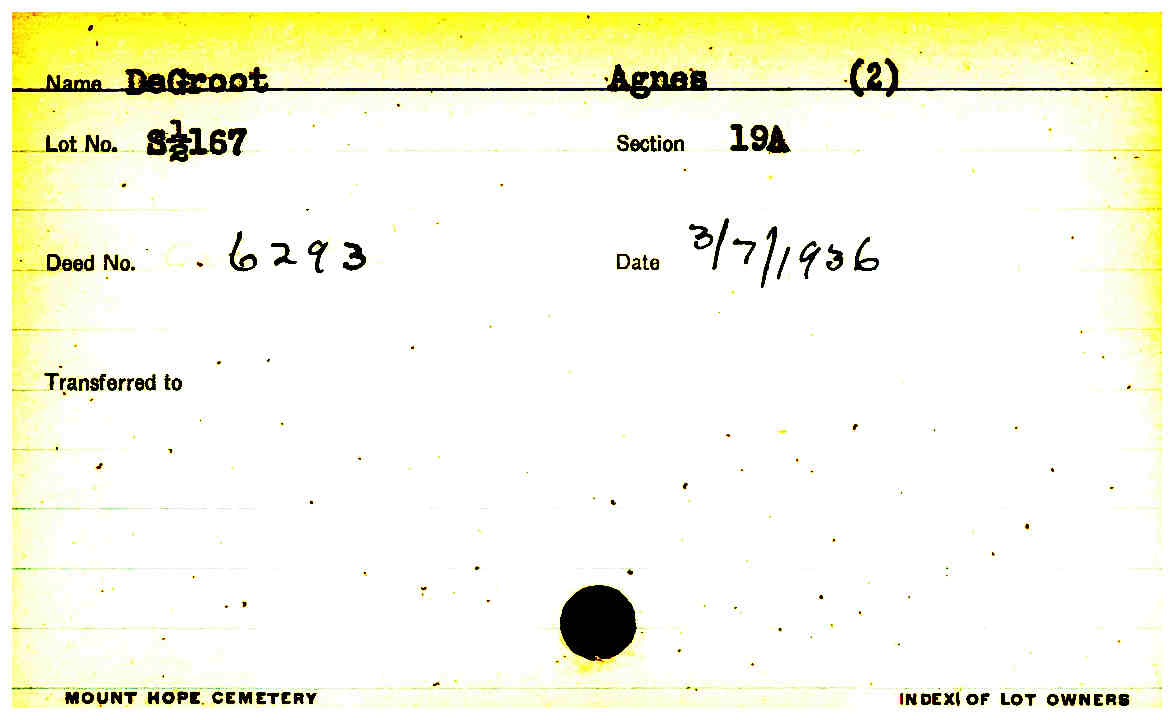 Name DeGroot Agnes (2)
Lot No. S½167 Section 19A
Deed No. 6293 Date 3/7/1936
Transferred to
MOUNT HOPE CEMETERY INDEX OF LOT OWNERS